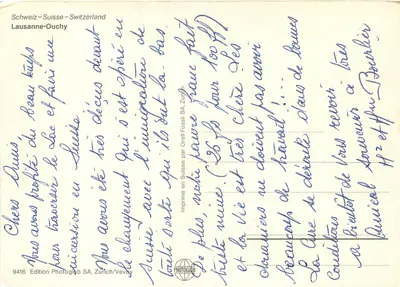 Schweiz–Suisse–Switzerland
Lausanne-Ouchy
Chers Amis
Nous avons profité du beau temps
pour traverser le Lac et faire une
incursion en Suisse
Nous avons été très déçus devant
le changement qui s'est opéré en
Suisse avec l'immigration de
toute sorte qui ils ont là bas.
De plus, notre pauvre franc fait
triste mine. (28 fs pour 100 ff)
et la vie est très chère. Les
douaniers ne doivent pas avoir
beaucoup de travail!!....
La Cure se déroule dans de bonnes
conditions
à bientôt de vous revoir
Amical souvenir à tous
Mr et Mme
9416 Edition Photoglob SA, Zürich/Vevey
Imprimé en Suisse par Orell Füssli SA, Zurich
PHOTOGLOB